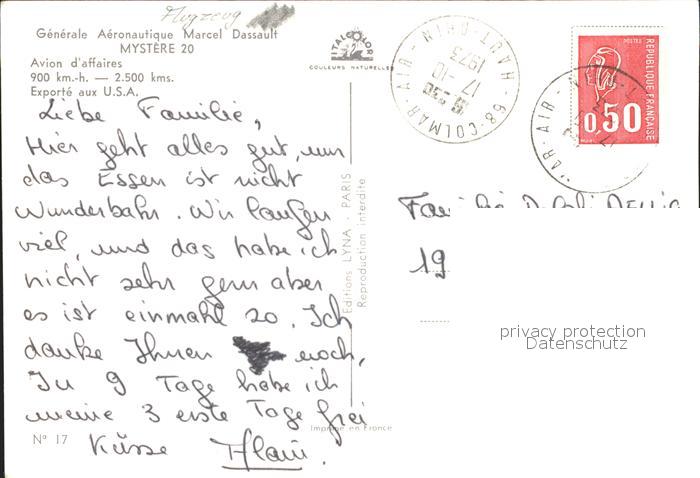 Flugzeug
Générale Aéronautique Marcel Dassault
MYSTÈRE 20
Avion d'affaires
900 km.-h. — 2.500 kms.
Exporté aux U.S.A.
ITALCOLOR
COULEURS NATURELLES
68-COLMAR-AIR - HAUT-RHIN
17-10
1973
POSTES
REPUBLIQUE FRANÇAISE
0,50
Liebe Familie,
Hier geht alles gut, nun
das Essen ist nicht
Wunderbahr. Wir laufen
viel, und das habe ich
nicht sehr gern aber
es ist einmahl so. Ich
danke Ihnen noch,
In 9 Tage habe ich
meine 3 erste Tage frei
Küsse Alain.
Nº 17
Editions LYNA - PARIS
Reproduction interdite
Imprimé en France
19
privacy protection
Datenschutz